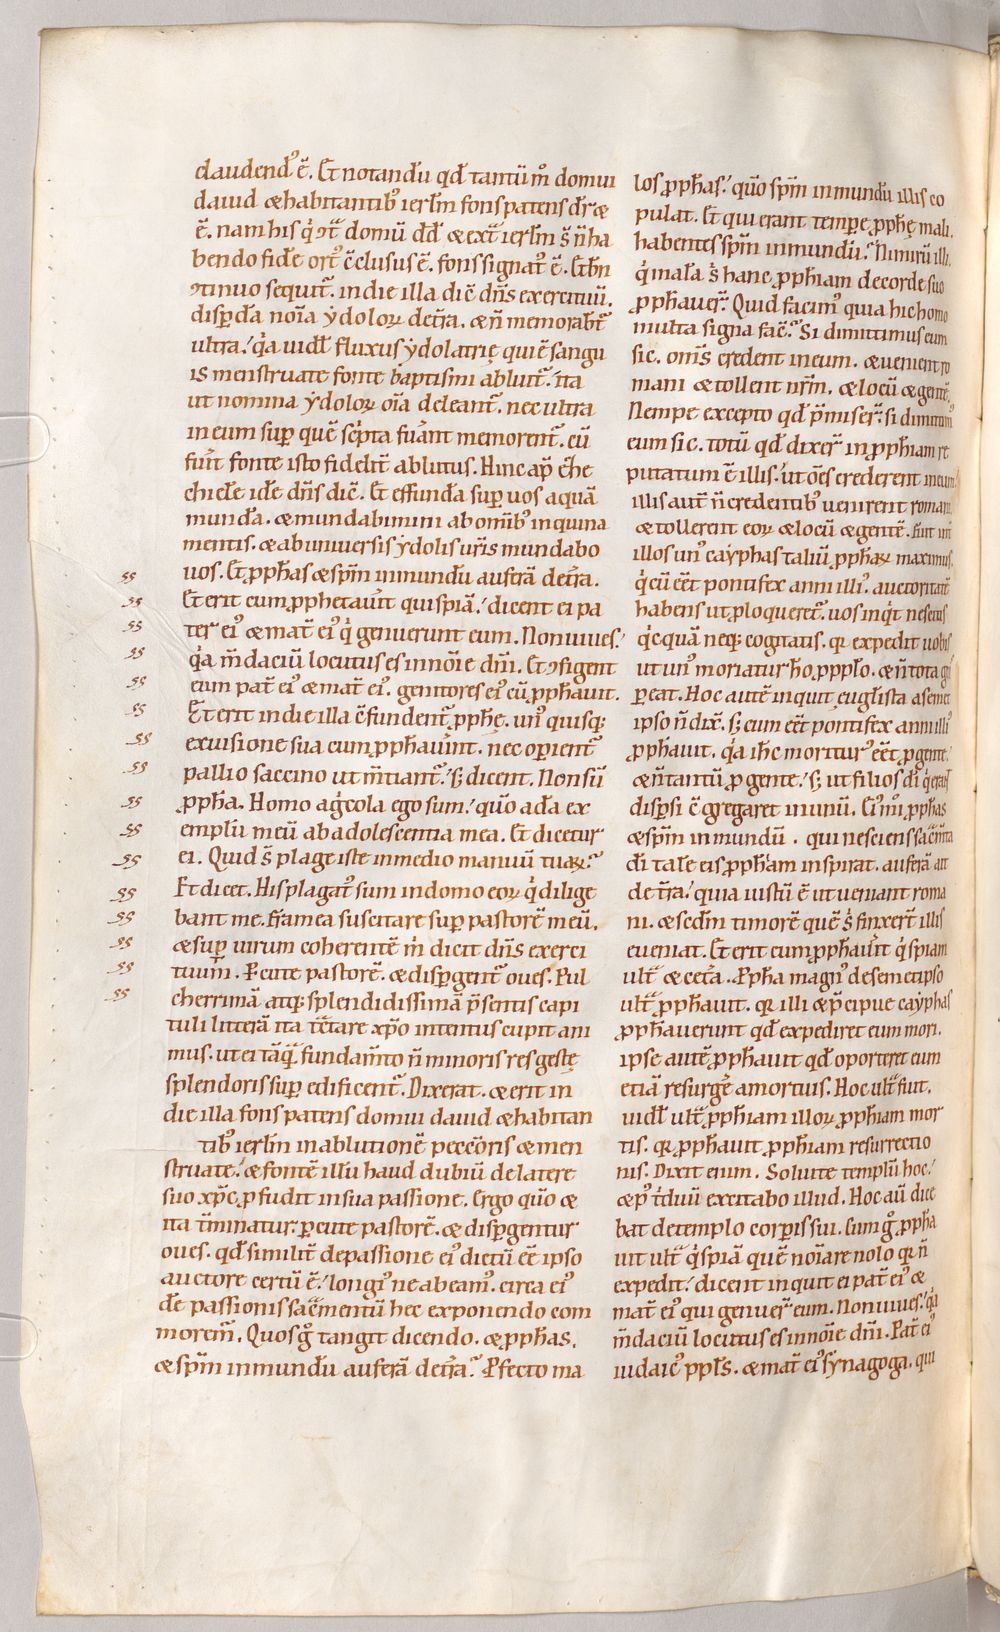 claudend᷒ ē. Et notandū qd̄ tantūm̊ domui
dauid & habitantib᷒ ierl̄m fons patens dr̄ &
ē. nam his q̇ ꝯt̄ domū dd̄ & ext̄ ierl̄m s̄ n̄ ha
bendo fid̄e ort᷒ c̄clusus ē. fons signat᷒ ē. Et bn̄
ꝯtinuo sequit᷑. in die illa dic̄ dn̄s exercituū.
disꝑdā noīa ẏdoloꝝ de tr̄a. & n̄ memorabt᷑
ultra.' q̇a uidl̄ fluxus ẏdolatrię qui ē sangu
is menstruate fonte baptismi abluit᷑. ita
ut nomina ẏdoloꝝ oīa deleant᷑. nec ultra
in eum suꝑ quē sc̄pta fuānt memorent᷑. cū
fuīt fonte isto fidelit̄ ablutus. Hinc ap̄ eħe
chiele ide dn̄s dic̄. Et effundā suꝑ uos aquā
mundā. & mundabimini ab omīb᷒ inquina
mentis. & ab uniuersis ẏdolis ur̄is mundabo
uos. Et ꝓpħas & sp̄m inmundū auferā de tr̄a.
ss Et erit cum ꝓphetauīt quispiā.' dicent ei pa
ss ter ei᷒ & mat̄ ei᷒ q̇ genuerunt eum. Non uiues.'
ss q̇a m̄daciū locutus es in noīe dn̄i. Et ꝯfigent
ss eum pat̄ ei᷒ & mat̄ ei᷒. genitores ei᷒ cū ꝓpħauit.
ss Et erit in die illa c̄fundent᷑ ꝓpħę. un᷒ quisq;
ss ex uisione sua cum ꝓpħauīnt. nec oꝑient᷑
ss pallio saccino ut m̄tiant᷑.' s; dicent. Non sū
ss ꝓpħa. Homo ag̊cola ego sum.' quō adā ex
ss emplū meū ab adolescentia mea. Et dicetur
ss ei. Quid s̄ plage iste in medio manuū tuaꝝ.᷉
ss Et dicet. His plagat᷒ sum in domo eoꝝ q̇ dilige
ss bant me. Framea suscitare suꝑ pastorē meū.
ss & suꝑ uirum coherentē m̄ dicit dn̄s exerci
ss tuum. Ꝑcute pastorē. & disꝑgent᷑ oues. Pul
ss cherrimā atq; splendidissimā p̄sentis capi
tuli litterā ita tc̄tare xp̄o intentus cupit ani
mus. ut ei tāqᷓ fundam̄to n̄ minoris res gestę
splendoris suꝑ edificent᷑. Dixerat. & erit in
die illa fons patens domui dauid & habitan
tib᷒ ierl̄m in ablutionē pecc̄oris & men
struate.' & fontē illū haud dubiū de latere
suo xp̄c ꝓfudit in sua passione. Ergo quō &
ita t̄minatur. ꝑcute pastorē. & disꝑgentur
oues. qd̄ similit̄ de passione ei᷒ dictū eē ipso
auctore certū ē.' longi᷒ ne abeam᷒. circa ei᷒
de passionis sac̄mentū hec exponendo com
morem᷒. Quos g̊ tangit dicendo. & ꝓpħas.
& sp̄m inmundū auferā de tr̄a.᷉ Ꝓfecto ma
los ꝓpħas.' quō sp̄m inmundū illis co
pulat. Et qui erant tempe ꝓpħę mali.
habentes sp̄m inmundū.᷉ Nimirū illi.
q̇ mala s̄ hanc ꝓpħiam de corde suo
ꝓpħauer̄. Quid facim᷒ quia hic homo
multa signa fac̄.᷉ Si dimittimus eum
sic. om̄s credent in eum. & uenient ro
mani & tollent nr̄m. & locū & gentē.
Nempe excepto qd̄ p̄miser̄. si dimittim᷒
eum sic. totū qd̄ dixer̄ in ꝓpħiam re
putatum ē illis. ut oēs crederent in eum.
illis aut̄ n̄ credentib᷒ uenirent romani.
& tollerent eoꝝ & locū & gentē. Fuit int̄
illos un᷒ caẏphas taliū ꝓpħaꝝ maximus.
q̇ cū eēt pontifex anni illi᷒. auctoritatē
habens ut ꝓloqueret᷑. uos inq̇t nescitis
q̇cquā neq; cogitatis. qꝛ expedit uobis
ut un᷒ moriatur ho ꝓ ppl̄o. & n̄ tota gn̄
ꝑeat. Hoc autē inquit euglīsta a semet
ipso n̄ dix̄. s; cum eēt pontifex anni illi᷒
ꝓpħauit. q̇a ih̄c moritur᷒ eēt ꝓ gente.'
& n̄ tantū ꝓ gente.' s; ut filios dī q̇ erant
disꝑsi c̄gregaret in unū. Ei᷒ m̊ ꝓpħas
& sp̄m inmundū. qui nesciens sac̄mta
dī tale eis ꝓpħiam inspirat. auferā ait
de tr̄a.' quia iustū ē ut ueniant roma
ni. & scd̄m timorē quē s̄ finxer̄t illis
eueniat. Et erit cum ꝓpħauīt q̇spiam
ult̄ & cetā. Ꝓpħa magn᷒ de semetipso
ult̄ ꝓpħauit. qꝛ illi & p̄cipue caẏphas
ꝓpħauerunt qd̄ expediret eum mori.
ipse autē ꝓpħauit qd̄ oporteret eum
etiā resurgē a mortuis. Hoc ult̄ fuit.
uidl̄ ult̄ ꝓpħiam illoꝝ ꝓpħiam mor
tis. qꝛ ꝓpħauit ꝓpħiam resurrectio
nis. Dixit enim. Soluite templū hoc.'
& p᷒ t̄duū excitabo illud. Hoc aū dice
bat de templo corꝑis sui. Cum g̊ ꝓpħa
uit ult̄ q̇spiā quē noīare nolo qꝛ n̄
expedit.' dicent inquit ei pat̄ ei᷒ &
mat̄ ei᷒ qui genuer̄ eum. Non uiues.' q̇a
m̄daciū locutus es in noīe dn̄i. Pat̄ ei᷒
iudaic᷒ ppl̄s. & mat̄ ei᷒ sẏnagoga. qui